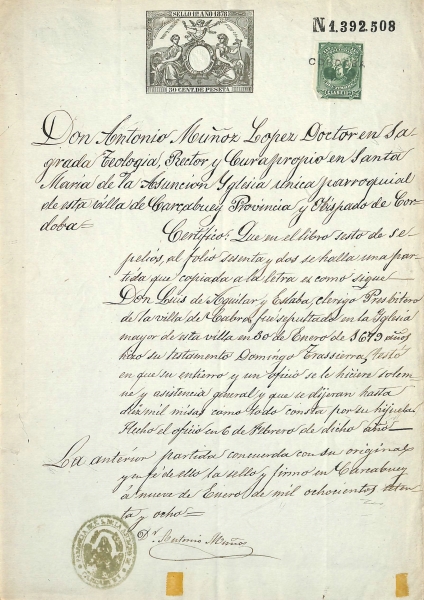 SELLO 11º AÑO 1878
N1.392.508
50 CENT. DE PESETA
Don Antonio Muñoz Lopez Doctor en Sa-
grada Teologia, Rector y Cura propio en Santa
Maria de la Asuncion Yglesia unica parroquial
de esta villa de Carcabuey Provincia y Obispado de Cor-
doba=
Certifico: Que en el libro sesto de se-
pelios, al folio sesenta y dos se halla una par-
tida que copiada a la letra es como sigue
Don Luis de Aguilar y Eslaba, clerigo Presbitero
de la villa de Cabra, fue sepultado en la Yglesia
mayor de esta villa en 30 de Enero de 1679 años
hizo su testamento Domingo Trassierra,
en que su entierro y un oficio se le hiciese solem-
ne y asistencia general y que se dijeran hasta
diez mil misas como todo consta por su hijuela
Hecho el oficio en 6 de Febrero de dicho año
La anterior partida concuerda con su original
y en fé de ello la sello y firmo en Carcabuey
á nueve de Enero de mil ochocientos seten-
ta y ocho
Dr. Antonio Muñoz